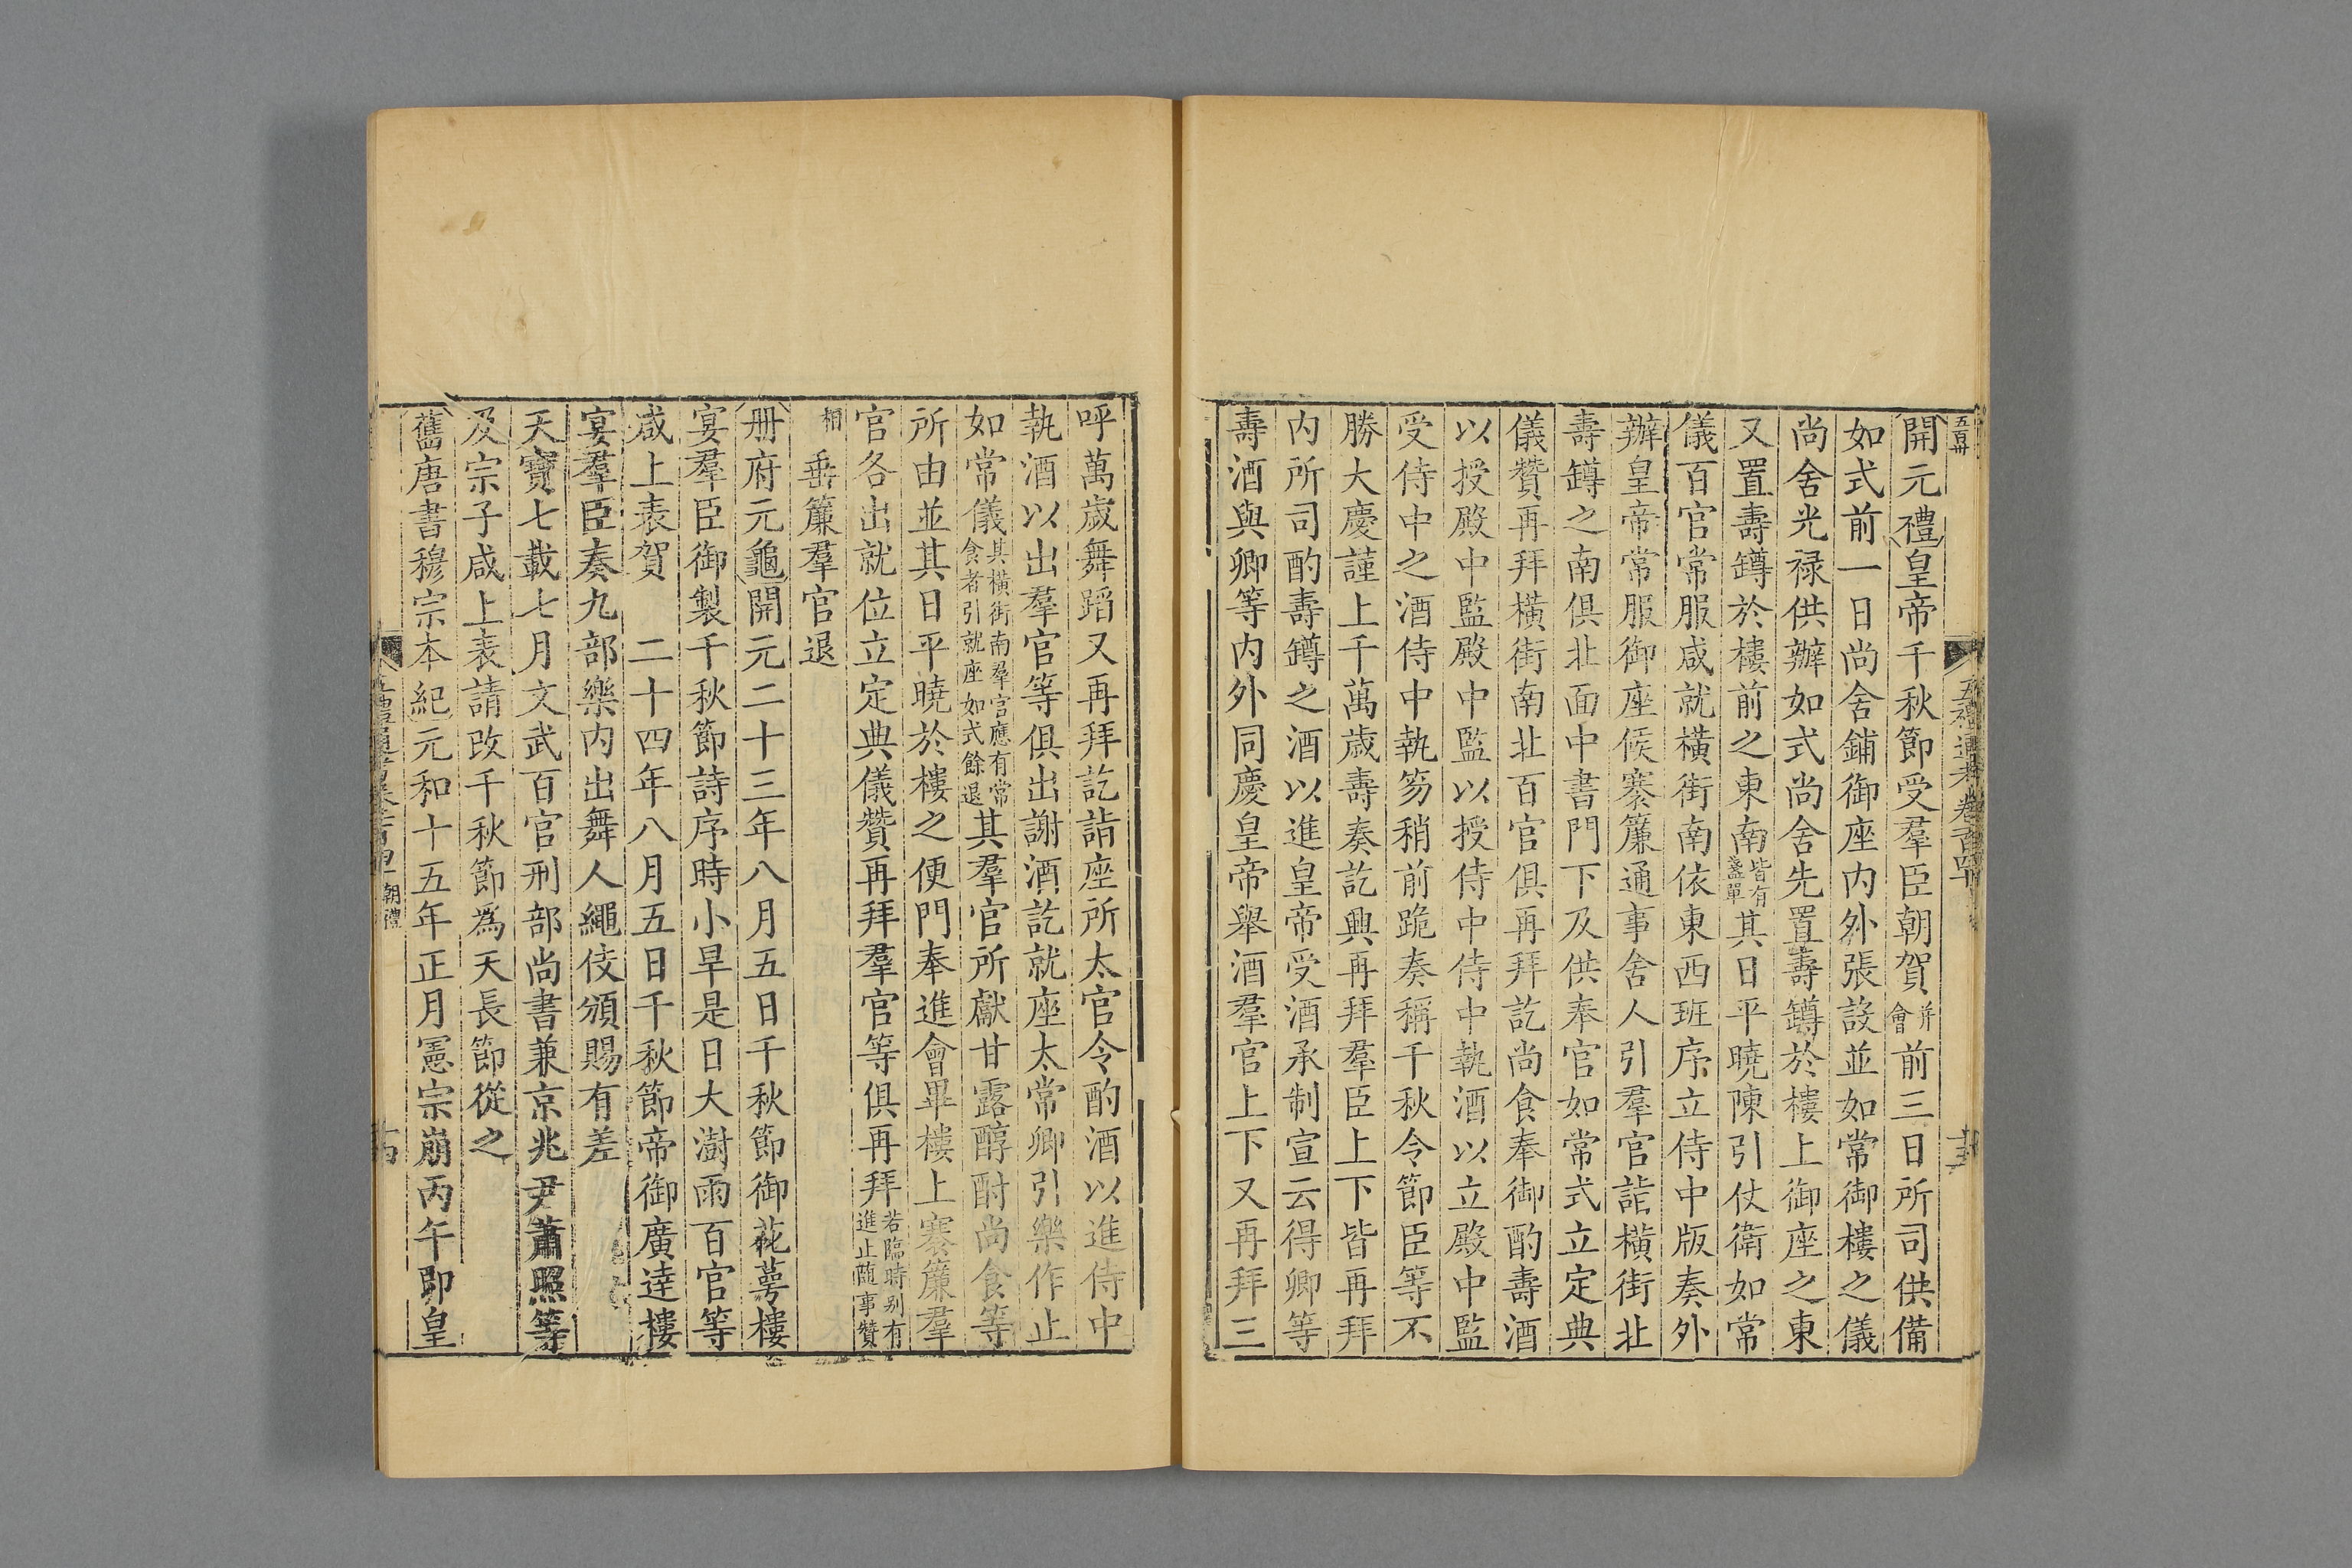 開元禮皇帝千秋節受羣臣朝賀并會前三日所司供備
如式前一日尚舍鋪御座内外張設並如常御樓之儀
尚舍光禄供辦如式尚舍先置壽罇於樓上御座之東
又置壽罇於樓前之東南皆有盞單其日平曉陳引仗衛如常
儀百官常服咸就横街南依東西班序立侍中版奏外
辦皇帝常服御座候褰簾通事舍人引羣官詣横街北
壽罇之南俱北面中書門下及供奉官如常式立定典
儀贊再拜横街南北百官俱再拜訖尚食奉御酌壽酒
以授殿中監殿中監以授侍中侍中執酒以立殿中監
受侍中之酒侍中執笏稍前跪奏稱千秋令節臣等不
勝大慶謹上千萬歲壽奏訖興再拜羣臣上下皆再拜
内所司酌壽罇之酒以進皇帝受酒承制宣云得卿等
壽酒與卿等内外同慶皇帝舉酒羣官上下又再拜三
呼萬歲舞蹈又再拜訖詣座所太官令酌酒以進侍中
執酒以出羣官等俱出謝酒訖就座太常卿引樂作止
如常儀其横街南羣官應有常食者引就座如式餘退其羣官所獻甘露醇酎尚食等
所由並其日平曉於樓之便門奉進會畢樓上褰簾羣
官各出就位立定典儀贊再拜羣官等俱再拜若臨時别有進止隨事贊
相垂簾羣官退
册府元龜開元二十三年八月五日千秋節御花萼樓
宴羣臣御製千秋節詩序時小旱是日大澍雨百官等
咸上表賀 二十四年八月五日千秋節帝御廣達樓
宴羣臣奏九部樂内出舞人繩伎頒賜有差
天寶七載七月文武百官刑部尚書兼京兆尹蕭照等
及宗子咸上表請改千秋節爲天長節從之
舊唐書穆宗本紀元和十五年正月憲宗崩丙午即皇
朝禮